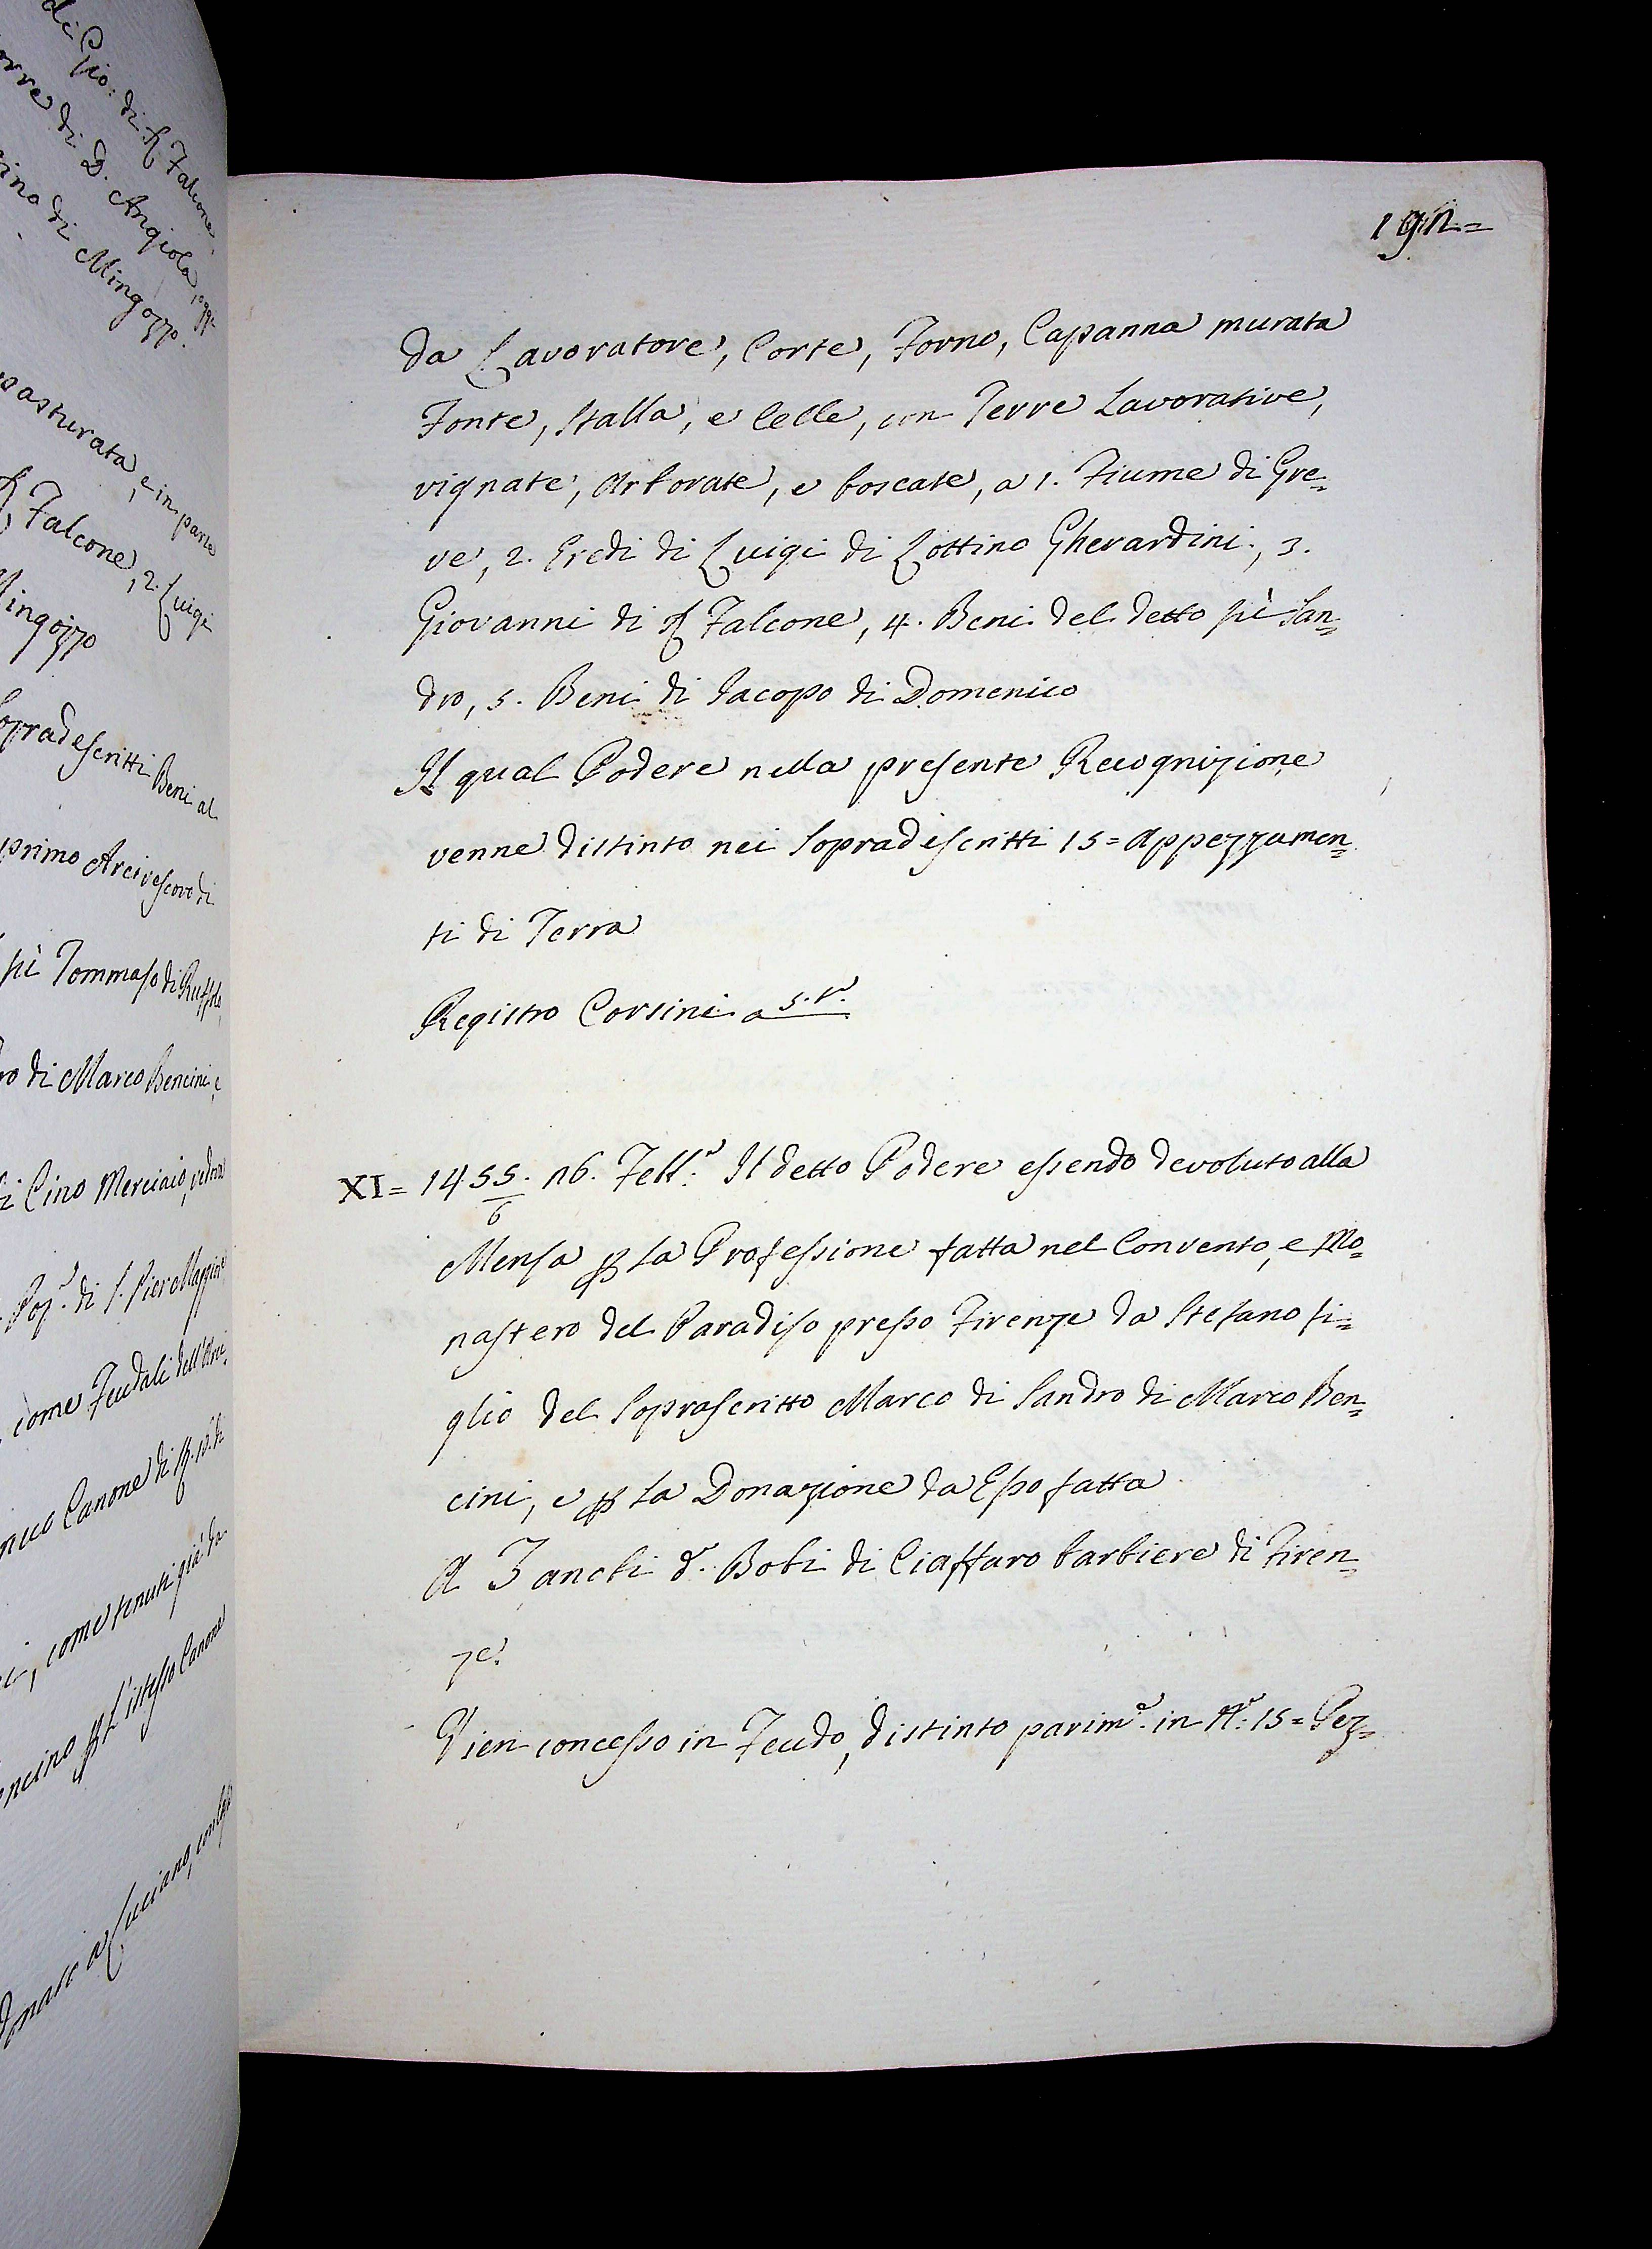 192=
da Lavoratore, Corte, Forno, Capanna murata
Fonte, Stalla, e Celle, con Terre Lavorative,
vignate, Arborate, e boscate, a 1. Fiume di Gre=
ve, 2. Eredi di Luigi di Lottino Gherardini, 3.
Giovanni di Falcone, 4. Beni del detto fù San=
dro, 5. Beni di Iacopo di Domenico
Il qual Podere nella presente Recognizione
venne distinto nei Sopradescritti 15= Appezzamen=
ti di Terra
Registro Corsini a 5. t.º
XI= 1455/6. 26. Febb.º Il detto Podere essendo devoluto alla
Mensa p la Professione fatta nel Convento, e Mo=
nastero del Paradiso presso Firenze da Stefano fi=
glio del Soprascritto Marco di Sandro di Marco Ben=
cini, e p la Donazione da Esso fatta
A Zanobi d.º Bobi di Ciaffaro barbiere di Firen=
ze
Vien concesso in Feudo, distinto parim.e in N.º 15= Pez=
di Gio: di Falcone,
di D. Angiola, oggi
di Mingozzo.
pasturata, e in parte
Falcone, 2. Luigi
Mingozzo
Sopradescritti Beni al
primo Arcivescovo di
fù Tommaso di
di Marco Bencini, e
Cino Merciaio, vedova
Pop.º di S. Pier Maggiore
come Feudali dell'Arci
Canone di
come tenuti già da
p l'istesso Canone
Donato a Luciano, con